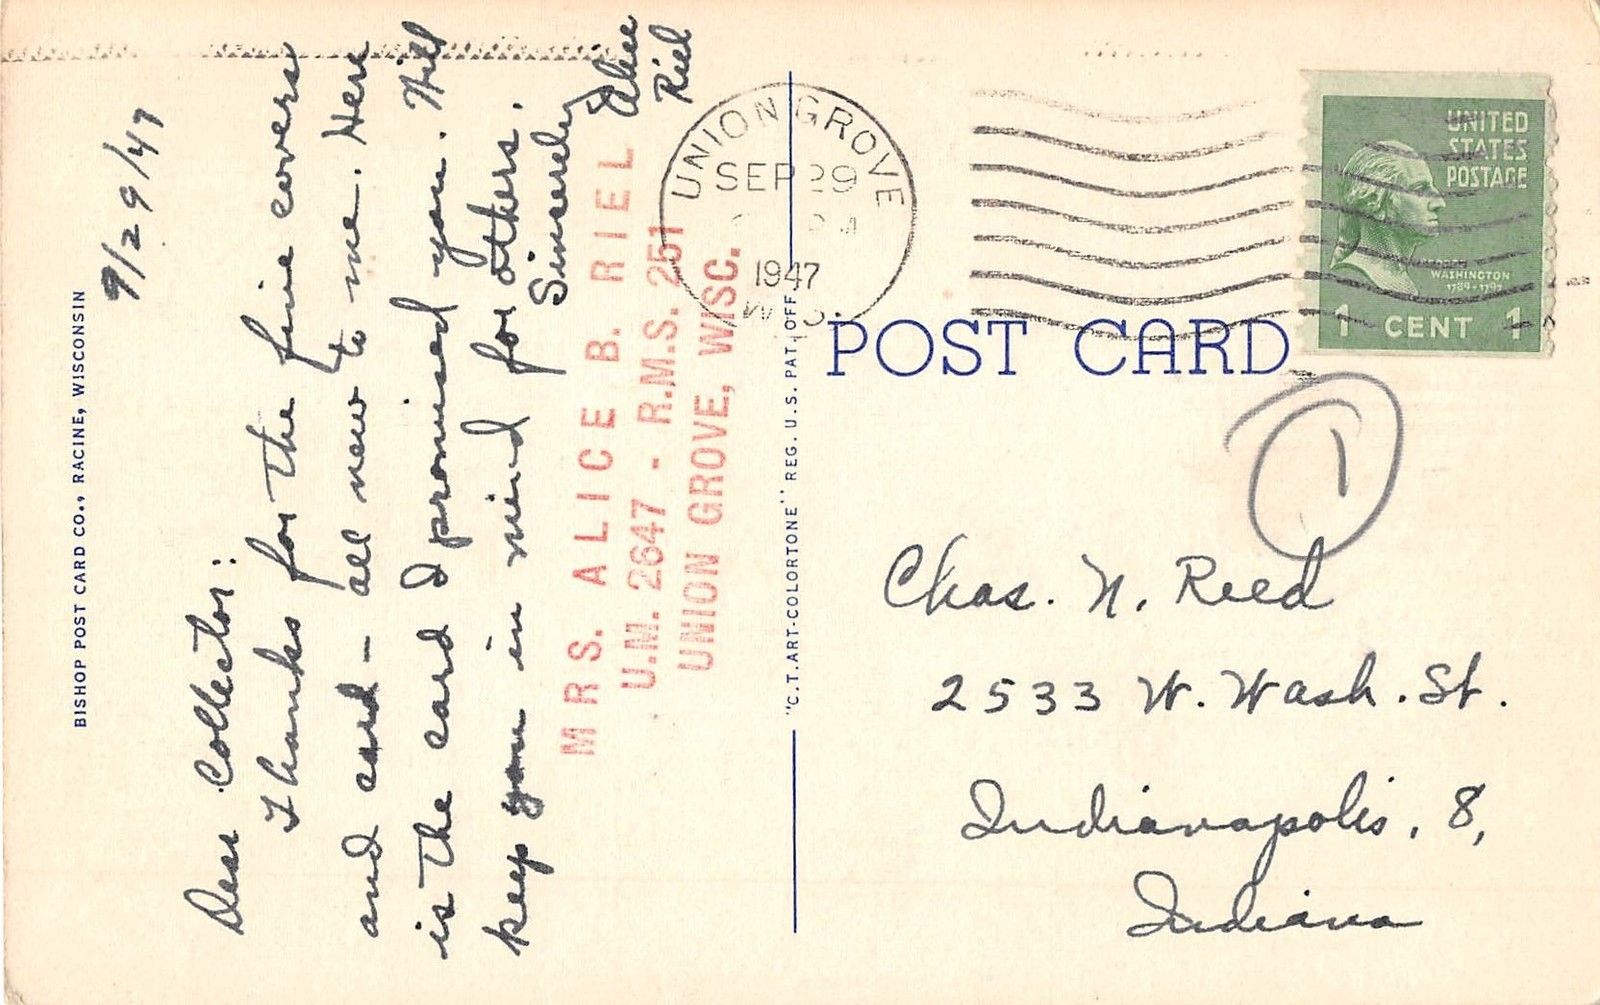 BISHOP POST CARD CO., RACINE, WISCONSIN
9/29/47
Dear Collector:
Thanks for the fine covers
and card - all new to me. Here
is the card I promised you. Will
keep you in mind for others.
Sincerely
Alice
Riel
MRS. ALICE B. RIEL
U.M. 2647 - R.M.S. 251
UNION GROVE, WISC.
"C.T. ART-COLORTONE" REG. U.S. PAT. OFF.
UNION GROVE
SEP 29
1947
WIS.
UNITED
STATES
POSTAGE
WASHINGTON
1789-1797
1 CENT 1
POST CARD
1
Chas. N. Reed
2533 W. Wash. St.
Indianapolis, 8,
Indiana